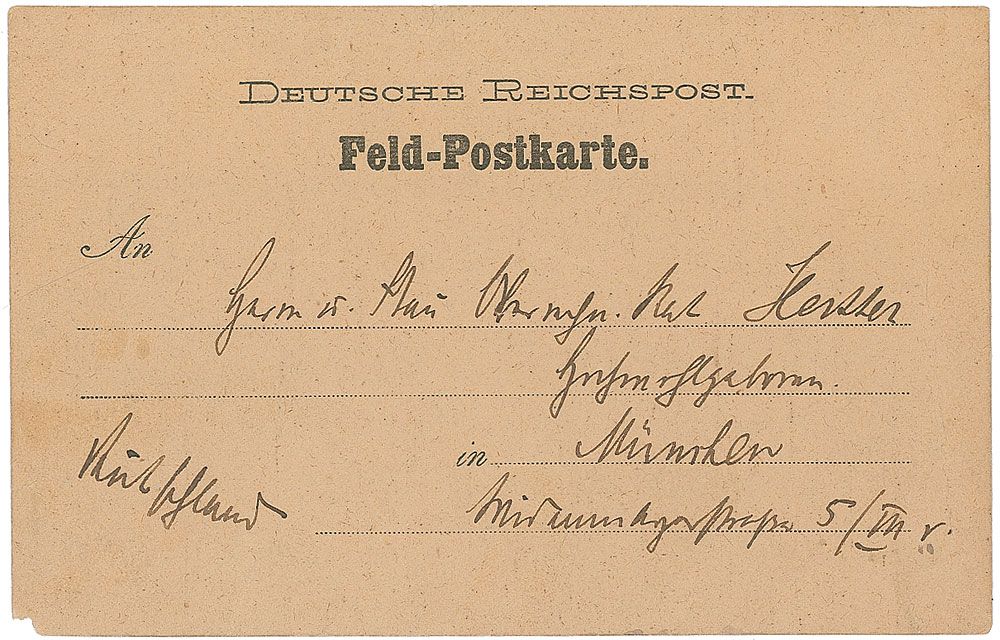 DEUTSCHE REICHSPOST.
Feld-Postkarte.
An
Herrn u. Frau Oberrechn. Rat Hertter
Hochwohlgeboren.
in München
Widenmayerstrasse 5/III r.